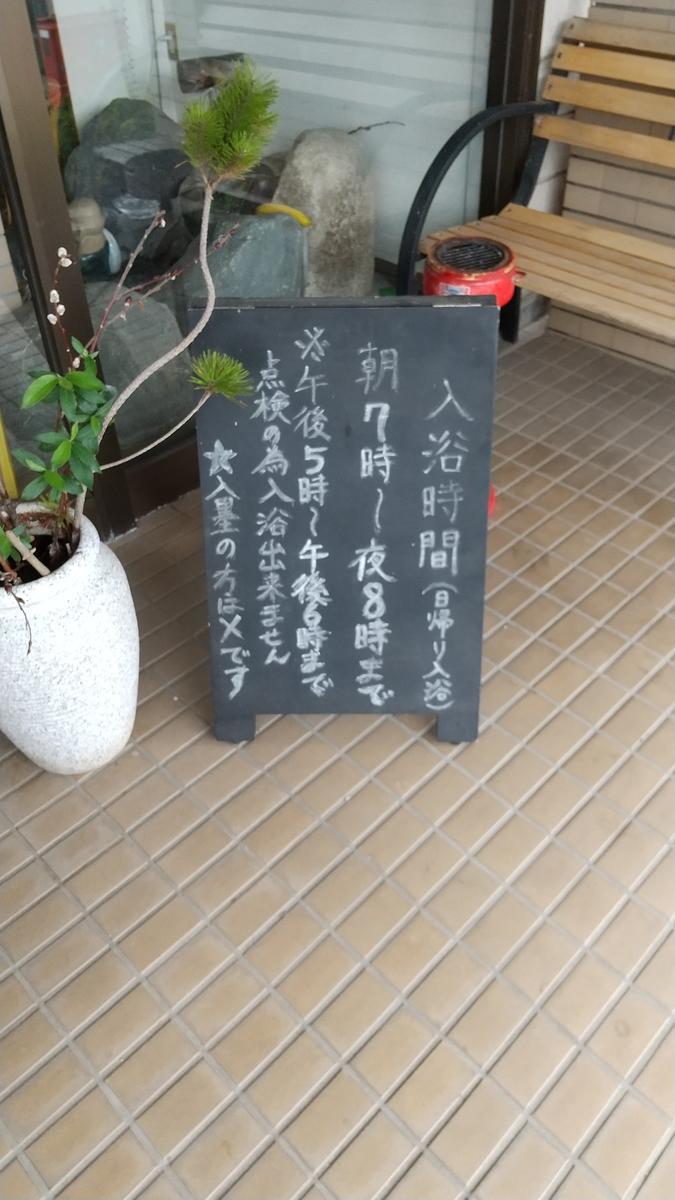 入浴時間(日帰り入浴)
朝7時~夜8時まで
※午後5時~午後6時まで
点検の為入浴出来ません
☆入墨の方は×です